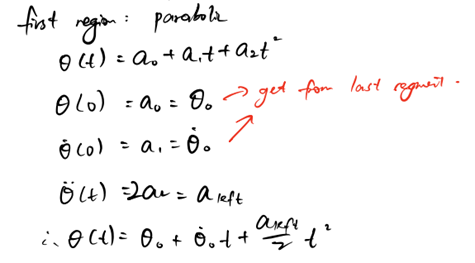 first region: parabolic
θ(t) = a₀ + a₁t + a₂t²
θ(0) = a₀ = θ₀ → get from last segment.
θ̇(0) = a₁ = θ̇₀
θ̈(t) = 2a₂ = a left
∴ θ(t) = θ₀ + θ̇₀ t + a left/2 t²